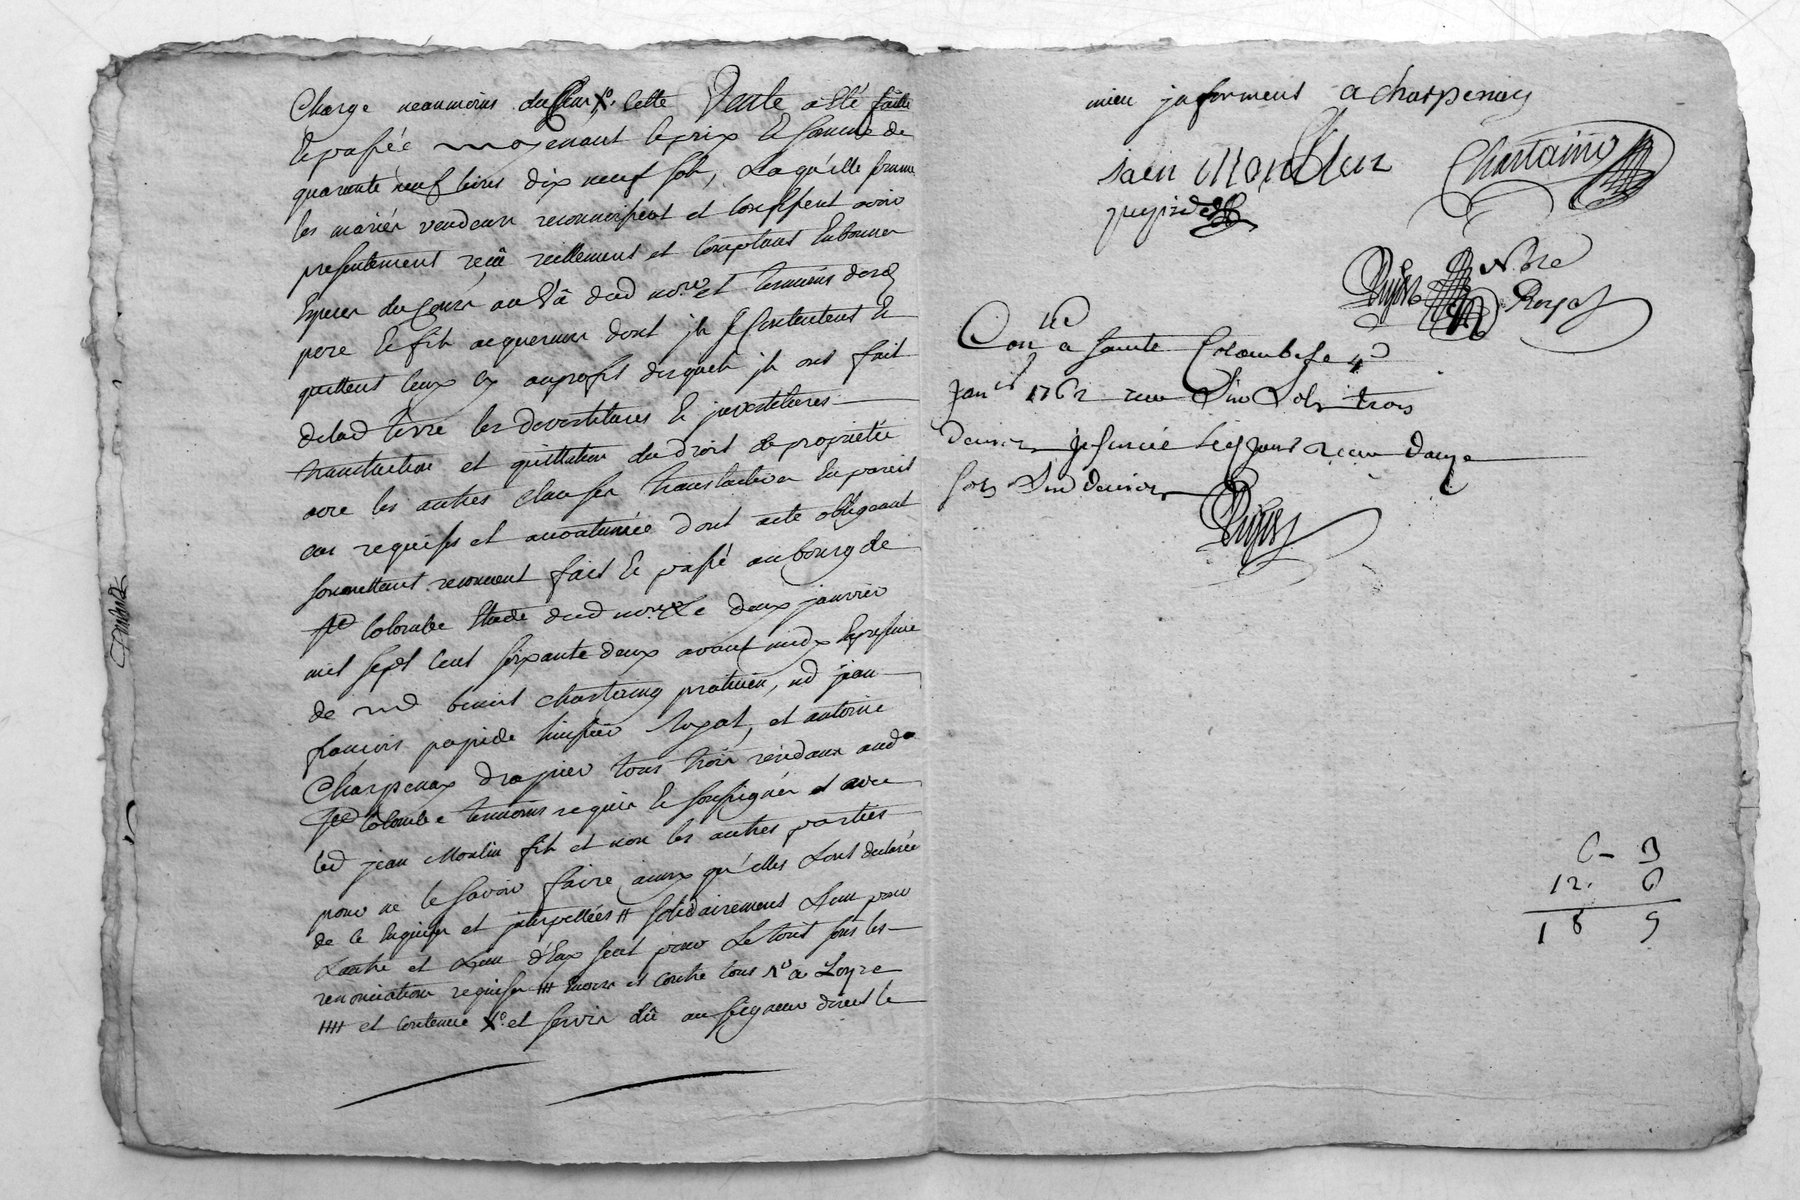 Charge neanmoins dusseur Xo. Cette Vente a été faitte
Et passéé moyenant le prix Et somme de
quarante neuf livres dix neuf sols, Laquélle somme
les mariés vendeurs reconnoissent et Confessent avoir
presentement reçu réellement et Comptant En bonnes
Especes du Cours au Vû dud no.re et temoins desd
pere Et fils acquereurs dont ils se Contentent Et
quittent Ceux cy au profit desquels ils ont fait
de lad terre les devestitures Et jnvestitures
translaction et quittation du droit de proprietée
avec les autres Clauses translatives En pareil
cas requises et accoutumée dont acte obligeant
soumettant renonceant fait Et passé au bourg de
Ste Colombe Etude dud no.re Le deux janvier
mil sept Cent soixante deux avant midy En presence
de md benoist Chartaing praticien, md jean
françois papide huissier Royal, et antoine
Charpenay drapier tous trois residans aud
Ste Colombe temoins requis Et soussignés et avec
led jean Moulin fils et non les autres parties
pour ne le savoir faire ainsy qu'elles L'ont declarée
de Ce Enquises et jnterpellées # solidairement L'un pour
Lautre et L'un d'Eux seul pour Le tout sous les
renonciations requises ### Envers et Contre tous No a Loyre
#### et Contenue Xo. et servis dû au seigneur direct le
jean Moullin Chartaino
a charpenay
Dujast N.Dre
Royal
Con.lé a sainte Colombe le 4d
Janer 1762 reçu Six Sols trois
Deniers jnsinué led jour reçu douze
sols Six deniers
Dujast
6 - 3
12. 6
18 9